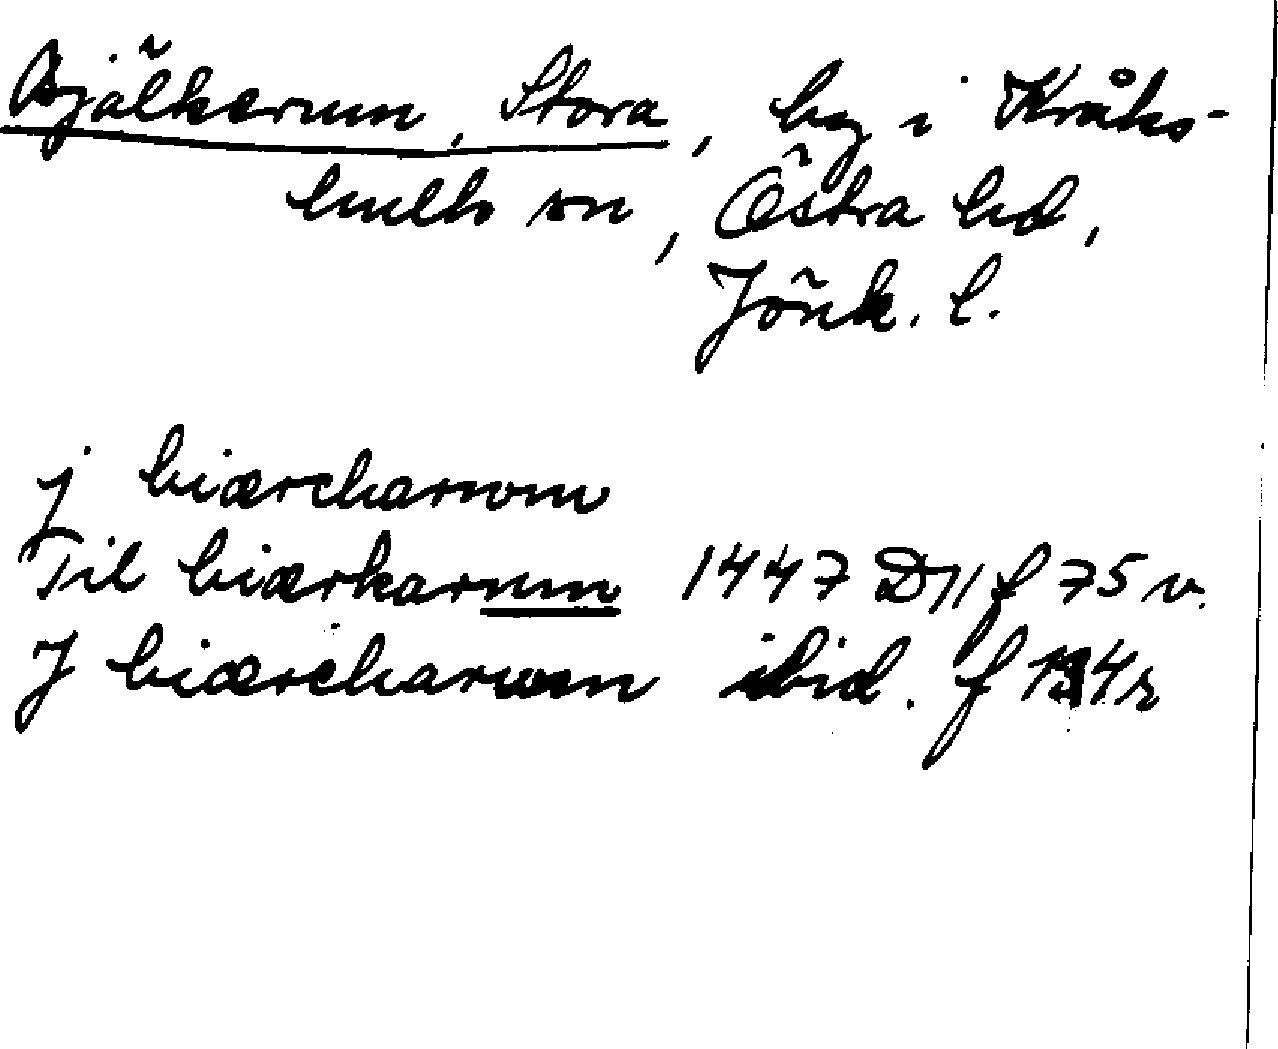 Bjälkerum, Stora, by i Kråks-
hults sn, Östra hd,
Jönk. l.
j biærcharwm
Til biærkarum 1447 D11 f 75 v.
J biærcharwm ibid. f 134r